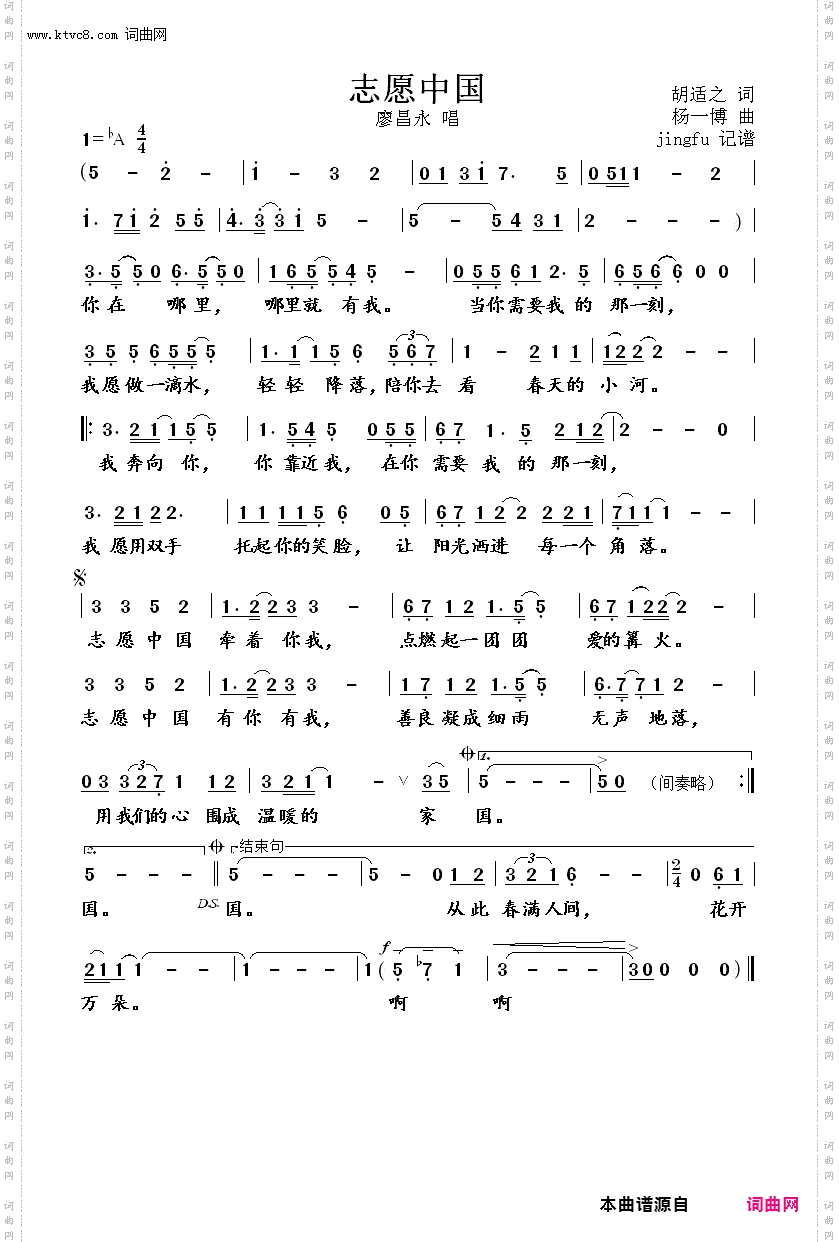 www.ktvc8.com 词曲网
志愿中国
胡适之 词
廖昌永 唱
杨一博 曲
1=♭A 4/4
jingfu 记谱
(5 - 2 - | 1 - 3 2 | 0 1 3 1 7. 5 | 0 511 1 - 2 |
1. 71 2 5 5 | 4. 3 3 1 5 - | 5 - 5 4 3 1 | 2 - - - )
3. 5 5 0 6. 5 5 0 | 1 6 5 5 4 5 - | 0 5 5 6 1 2. 5 | 6 5 6 6 0 0 |
你在 哪里, 哪里就 有我。 当你需要我的 那一刻,
3 5 5 6 5 5 5 | 1. 1 1 5 6 5 6 7 | 1 - 2 1 1 | 1 2 2 2 - - |
我愿做一滴水, 轻轻 降落,陪你去 看 春天的 小 河。
3. 2 1 1 5 5 | 1. 5 4 5 0 5 5 | 6 7 1. 5 2 1 2 | 2 - - 0
我 奔向 你, 你 靠近我, 在你 需要 我 的 那一刻,
3. 2 1 2 2. | 1 1 1 1 1 5 6 0 5 | 6 7 1 2 2 2 2 1 | 7 1 1 1 - - |
我 愿用双手 托起你的笑脸, 让 阳光洒进 每一个 角 落。
3 3 5 2 | 1. 2 2 3 3 - | 6 7 1 2 1. 5 5 | 6 7 1 2 2 2 - |
志 愿 中 国 牵着 你我, 点燃起一团团 爱的篝 火。
3 3 5 2 | 1. 2 2 3 3 - | 1 7 1 2 1. 5 5 | 6. 7 7 1 2 - |
志 愿 中 国 有你 有我, 善良凝成细雨 无声 地落,
0 3 3 2 7 1 1 2 | 3 2 1 1 - ∨ 3 5 | 1. 5 - - - | 5 0 (间奏略) :‖
用我们的心 围成 温暖的 家 国。
2. 5 - - - ‖ 结束句 5 - - - | 5 - 0 1 2 | 3 2 1 6 - - | 2/4 0 6 1 |
国。 D.S. 国。 从此 春满人间, 花开
2 1 1 1 - - | 1 - - - | 1 ( f 5 ♭7 1 | 3 - - - | 3 0 0 0 0 ) ‖
万 朵。 啊 啊
本曲谱源自 词曲网